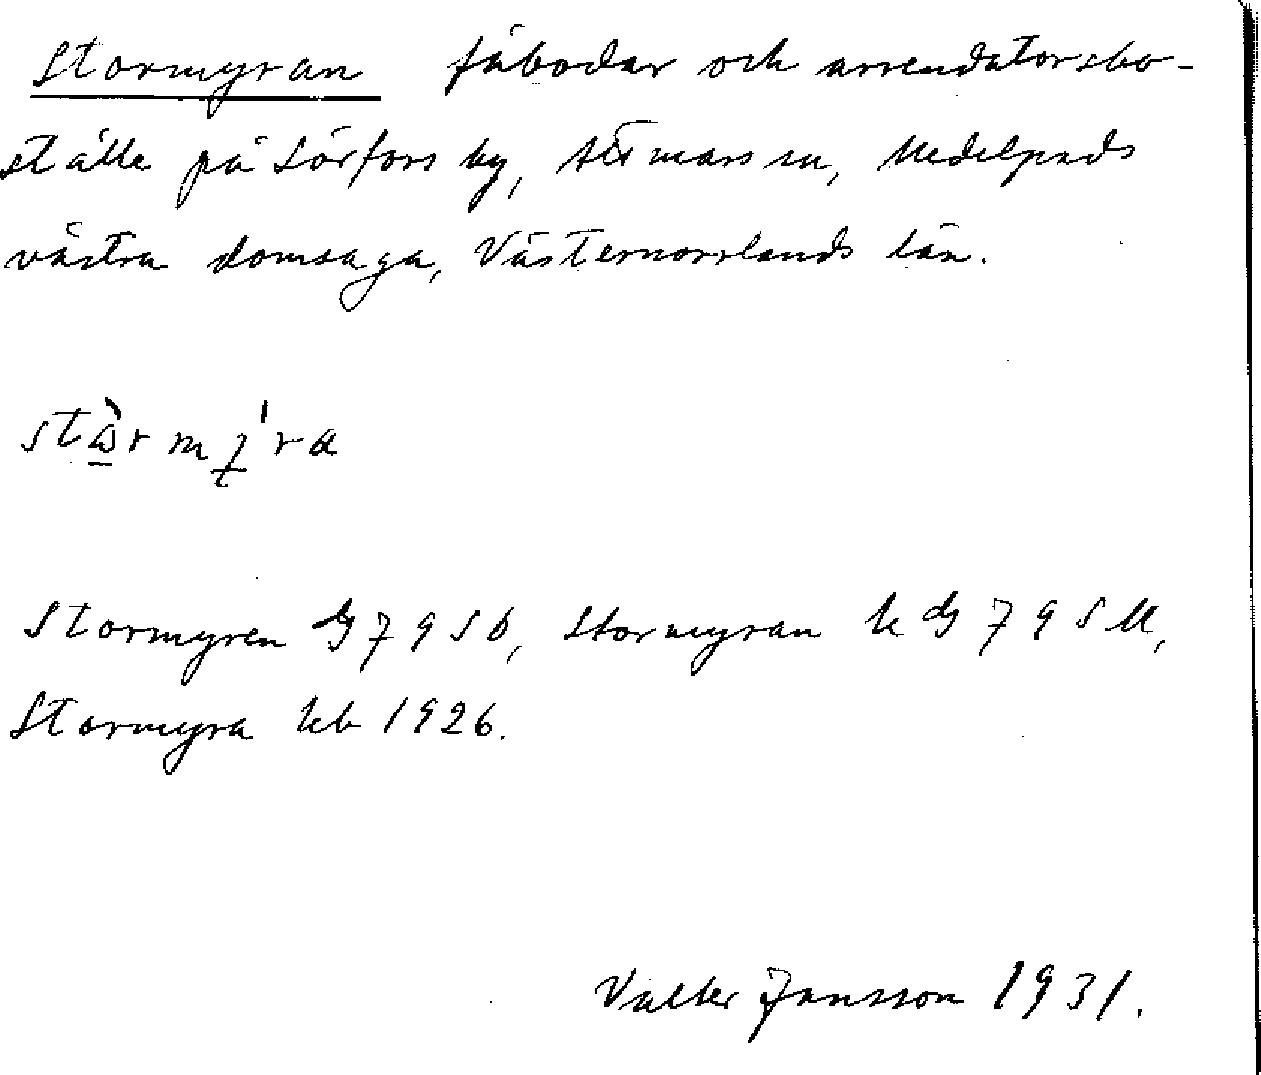 Stormyran fäbodar och arrendatorsbo-
ställe på Sörfors by, Attmars sn, Medelpads
västra domsaga, Västernorrlands län.
Stormyren G 79 SO, Stormyran k G 79 SU,
Stormyra kb 1926.
Valter Jansson 1931.